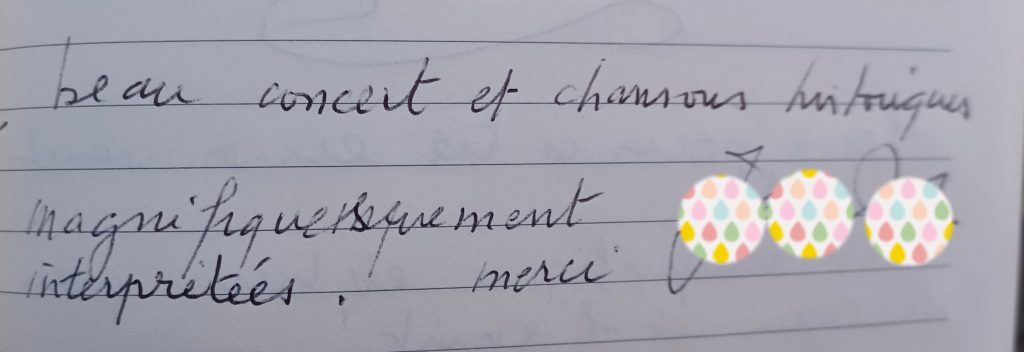 beau concert et chansons historiques
magnifiquersquement
interprétées. merci